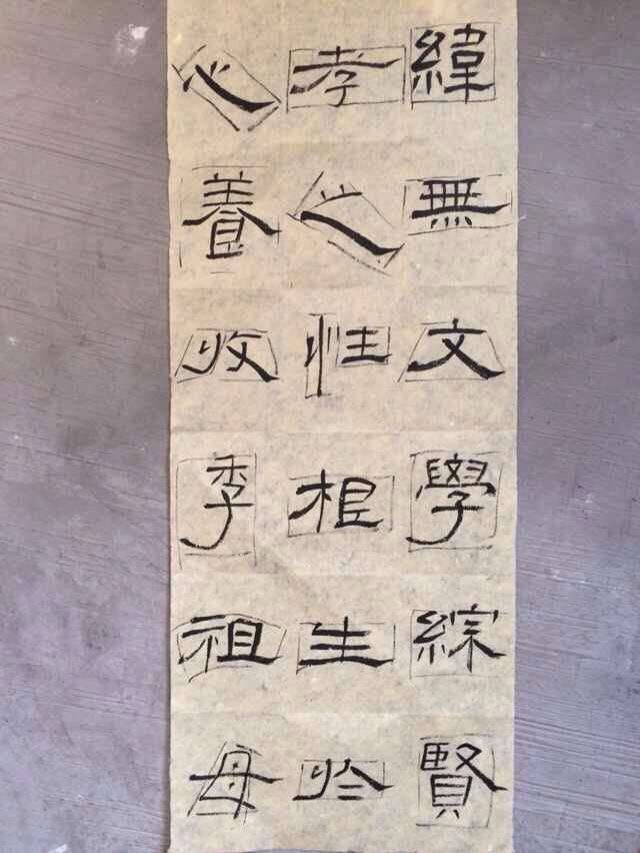 緯無文學綜賢
孝之性根生於
心養收季祖母